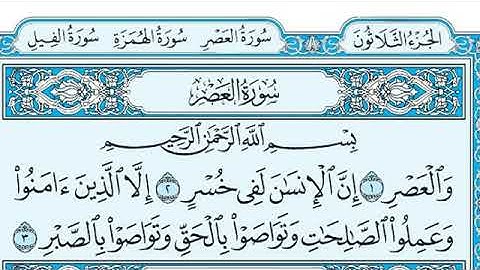 الجُزْءُ الثَّلَاثُونَ سُورَةُ العَصْرِ سُورَةُ الهُمَزَةِ سُورَةُ الفِيلِ
سُورَةُ العَصْرِ
بِسْمِ اللَّهِ الرَّحْمَٰنِ الرَّحِيمِ
وَالْعَصْرِ ١ إِنَّ الْإِنسَانَ لَفِى خُسْرٍ ٢ إِلَّا الَّذِينَ ءَامَنُوا۟
وَعَمِلُوا۟ الصَّالِحَاتِ وَتَوَاصَوْا۟ بِالْحَقِّ وَتَوَاصَوْا۟ بِالصَّبْرِ ٣